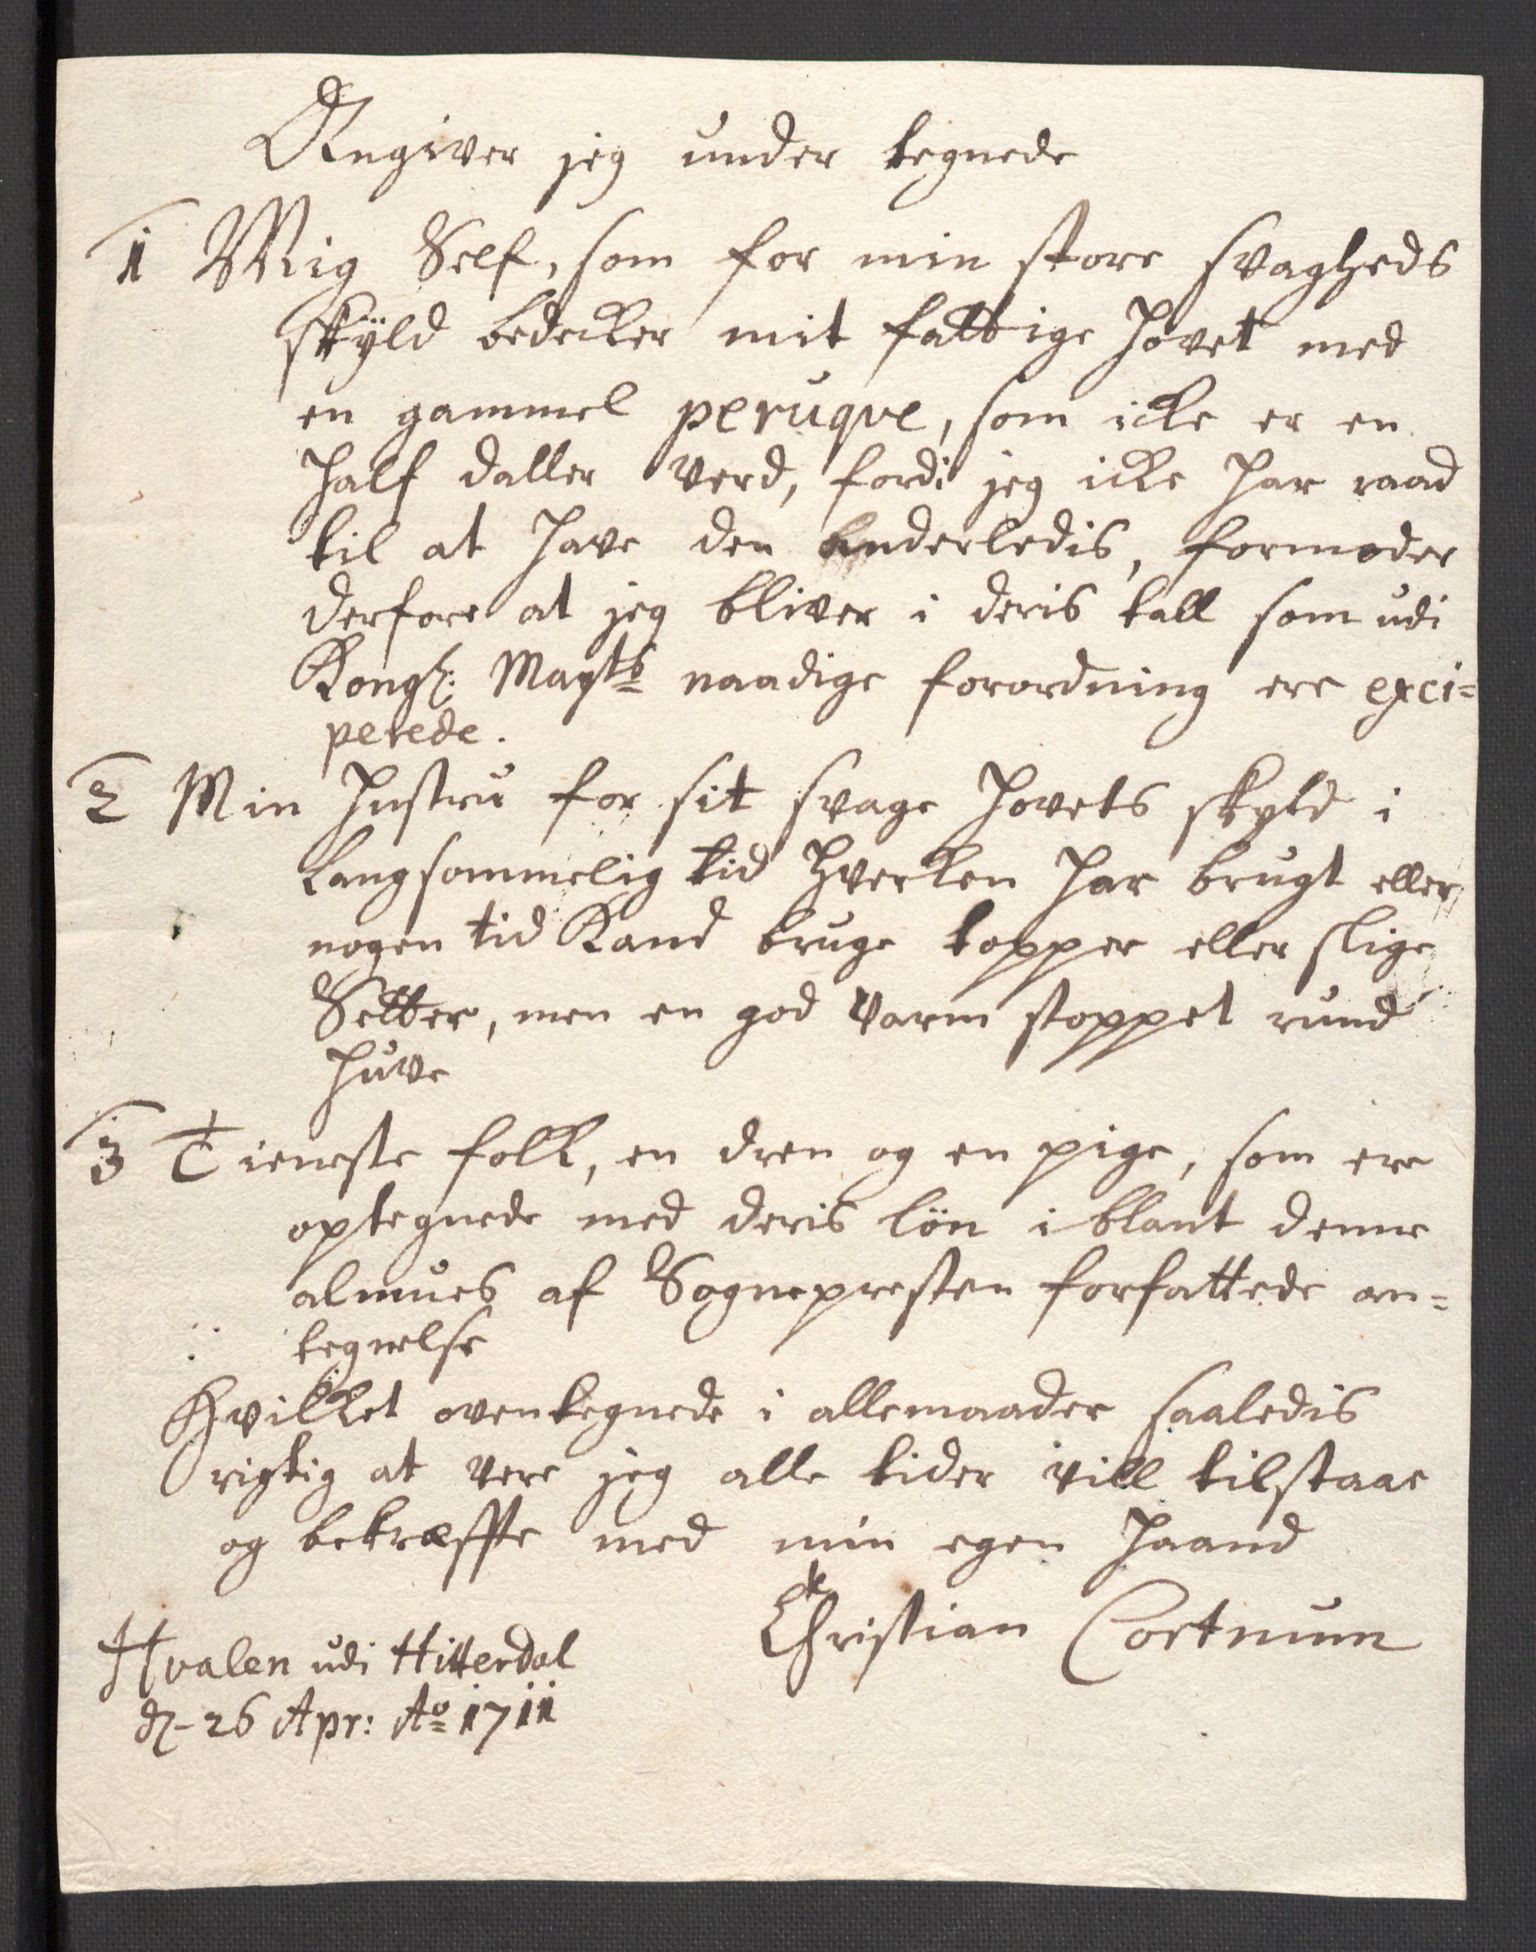 Angiver jeg under tegnede
1 Mig Self, som for min store svagheds
skÿld bedecker mit fattige hovet med
en gammel peruqve, som icke er en
half daller verd, fordi jeg icke har raad
til at have den anderledis, formoder
derfore at jeg bliver i deris tall som udi
Kongl: Mayts naadige forordning ere exci=
perede.
2 Min Hustru for sit svage hovets skyld i
langsommelig tid hverken har brugt eller
nogen tid kand bruge topper eller slige
Setter, men en god varm stoppet rund
huve
3 Tieneste folk, en dren og en pige, som ere
optegnede med deris lön i blant denne
almues af Sognepresten forfattede an=
tegnelse
Hvilket oventegnede i allemaader saaledis
rigtig at vere jeg alle tider vill tilstaae
og bekræffte med min egen haand
Christian Cortnum
Hvalen udi Hitterdal
d. 26 Apr: Ao 1711